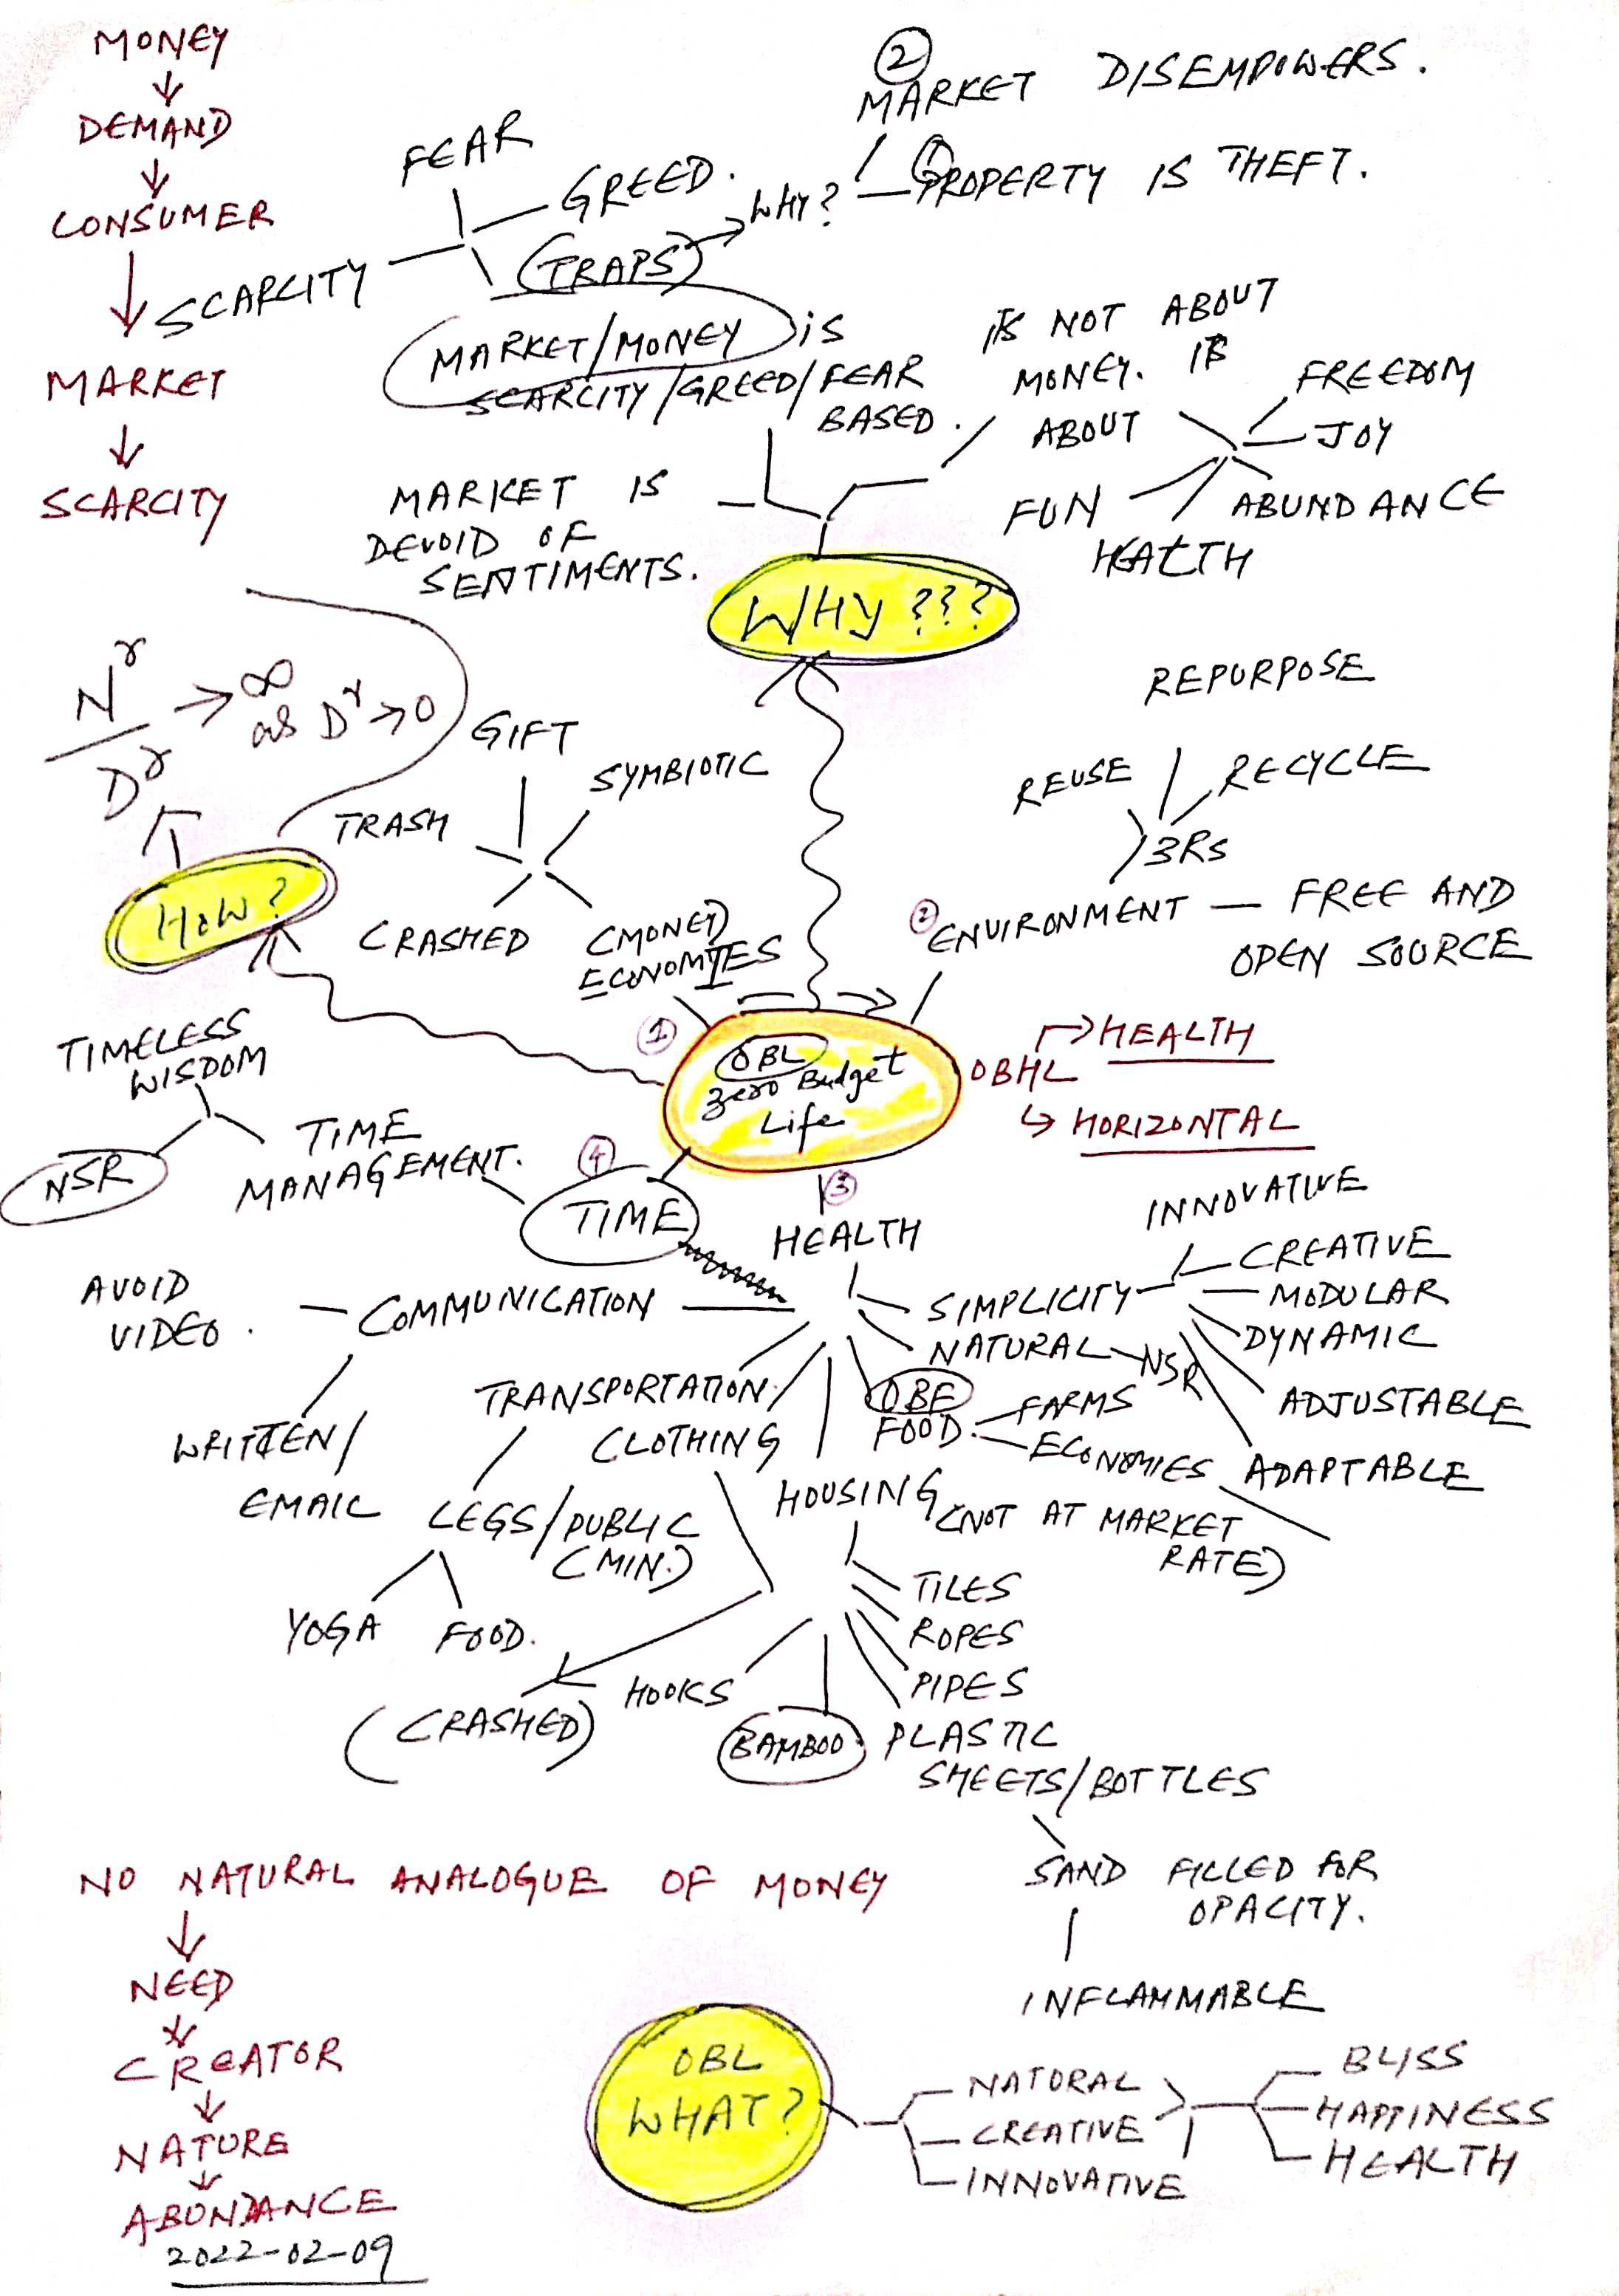 MONEY
↓
DEMAND
↓
CONSUMER
↓
MARKET
↓
SCARCITY
②
MARKET DISEMPOWERS.
① PROPERTY IS THEFT.
WHY?
FEAR
GREED.
(TRAPS)
SCARCITY
MARKET/MONEY is
SCARCITY/GREED/FEAR
BASED.
MARKET IS
DEVOID OF
SENTIMENTS.
ITS NOT ABOUT
MONEY. ITS
ABOUT
FREEDOM
JOY
ABUNDANCE
HEALTH
FUN
WHY???
N^r
D^r
→ ∞
as D^r → 0
HOW?
GIFT
SYMBIOTIC
TRASH
CRASHED
(MONEY)
ECONOMIES
①
REPURPOSE
REUSE
RECYCLE
3RS
② ENVIRONMENT — FREE AND
OPEN SOURCE
0BL
Zero Budget
Life
0BHL
→ HEALTH
↳ HORIZONTAL
TIMELESS
WISDOM
NSR
TIME
MANAGEMENT.
④
TIME
③
HEALTH
INNOVATIVE
CREATIVE
SIMPLICITY
MODULAR
DYNAMIC
NATURAL
NSR
ADJUSTABLE
ADAPTABLE
AVOID
VIDEO.
COMMUNICATION
WRITTEN/
EMAIL
TRANSPORTATION
LEGS/PUBLIC
(MIN.)
YOGA
FOOD.
CLOTHING
(CRASHED)
0BF
FOOD.
FARMS
ECONOMIES
HOUSING (NOT AT MARKET
RATE)
TILES
ROPES
PIPES
HOOKS
BAMBOO
PLASTIC
SHEETS/BOTTLES
SAND FILLED FOR
OPACITY.
INFLAMMABLE
NO NATURAL ANALOGUE OF MONEY
↓
NEED
↓
CREATOR
↓
NATURE
↓
ABUNDANCE
2022-02-09
0BL
WHAT?
NATURAL
CREATIVE
INNOVATIVE
BLISS
HAPPINESS
HEALTH